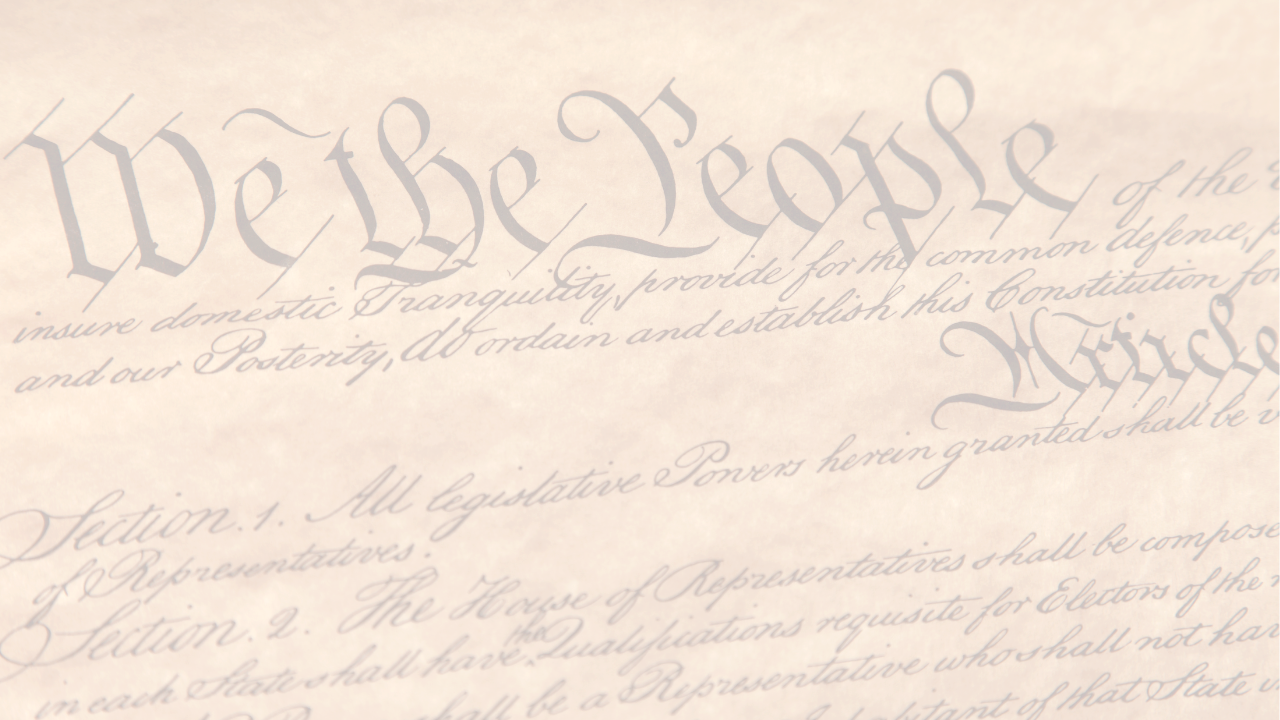 We the People of the
insure domestic Tranquility, provide for the common defence,
and our Posterity, do ordain and establish this Constitution for
Article
Section. 1. All legislative Powers herein granted shall be
of Representatives.
Section. 2. The House of Representatives shall be compose
in each State shall have the Qualifications requisite for Electors of the
shall be a Representative who shall not hav
of that State